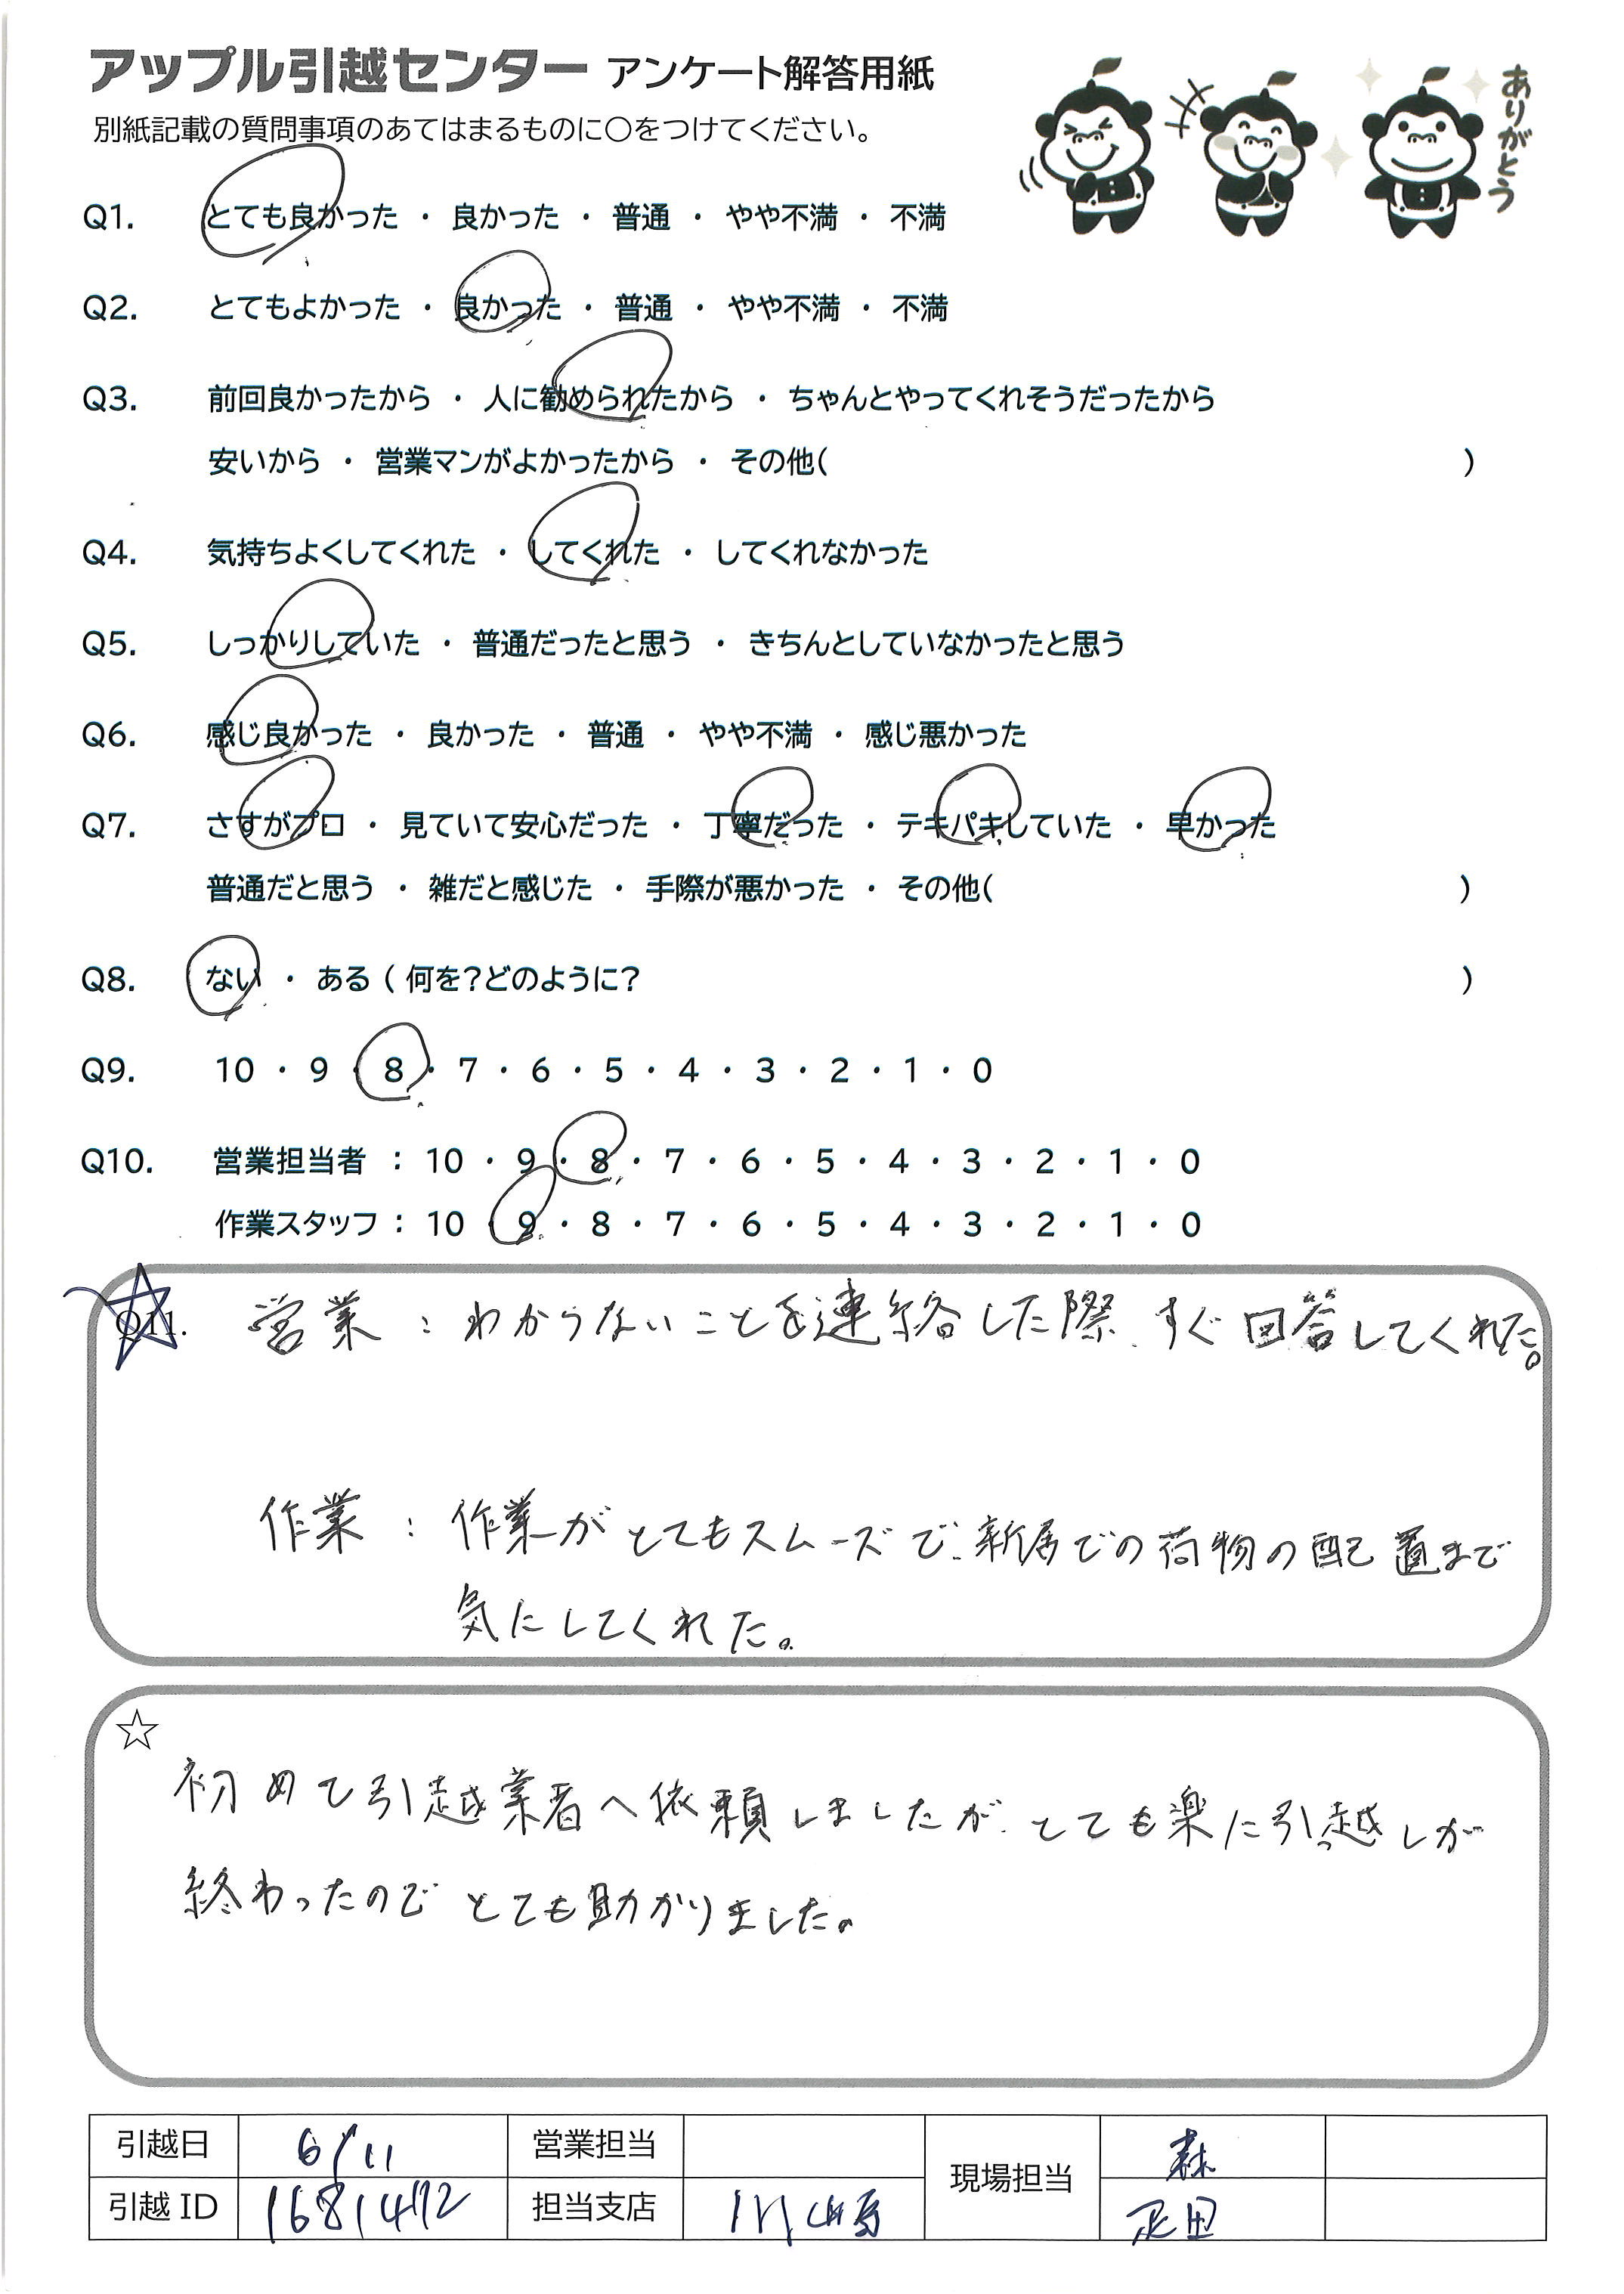 アップル引越センター アンケート解答用紙
別紙記載の質問事項のあてはまるものに〇をつけてください。
ありがとう
Q1. とても良かった ・ 良かった ・ 普通 ・ やや不満 ・ 不満
Q2. とてもよかった ・ 良かった ・ 普通 ・ やや不満 ・ 不満
Q3. 前回良かったから ・ 人に勧められたから ・ ちゃんとやってくれそうだったから
安いから ・ 営業マンがよかったから ・ その他( )
Q4. 気持ちよくしてくれた ・ してくれた ・ してくれなかった
Q5. しっかりしていた ・ 普通だったと思う ・ きちんとしていなかったと思う
Q6. 感じ良かった ・ 良かった ・ 普通 ・ やや不満 ・ 感じ悪かった
Q7. さすがプロ ・ 見ていて安心だった ・ 丁寧だった ・ テキパキしていた ・ 早かった
普通だと思う ・ 雑だと感じた ・ 手際が悪かった ・ その他( )
Q8. ない ・ ある ( 何を?どのように? )
Q9. 10 ・ 9 ・ 8 ・ 7 ・ 6 ・ 5 ・ 4 ・ 3 ・ 2 ・ 1 ・ 0
Q10. 営業担当者 : 10 ・ 9 ・ 8 ・ 7 ・ 6 ・ 5 ・ 4 ・ 3 ・ 2 ・ 1 ・ 0
作業スタッフ : 10 ・ 9 ・ 8 ・ 7 ・ 6 ・ 5 ・ 4 ・ 3 ・ 2 ・ 1 ・ 0
Q11. 営業 : わからないことを連絡した際、すぐ回答してくれた。
作業 : 作業がとてもスムーズで、新居での荷物の配置まで
気にしてくれた。
☆
初めて引越業者へ依頼しましたが、とても楽に引っ越しが
終わったのでとても助かりました。
引越日 6/11 営業担当 現場担当 森
引越 ID 1681472 担当支店 川崎 疋田